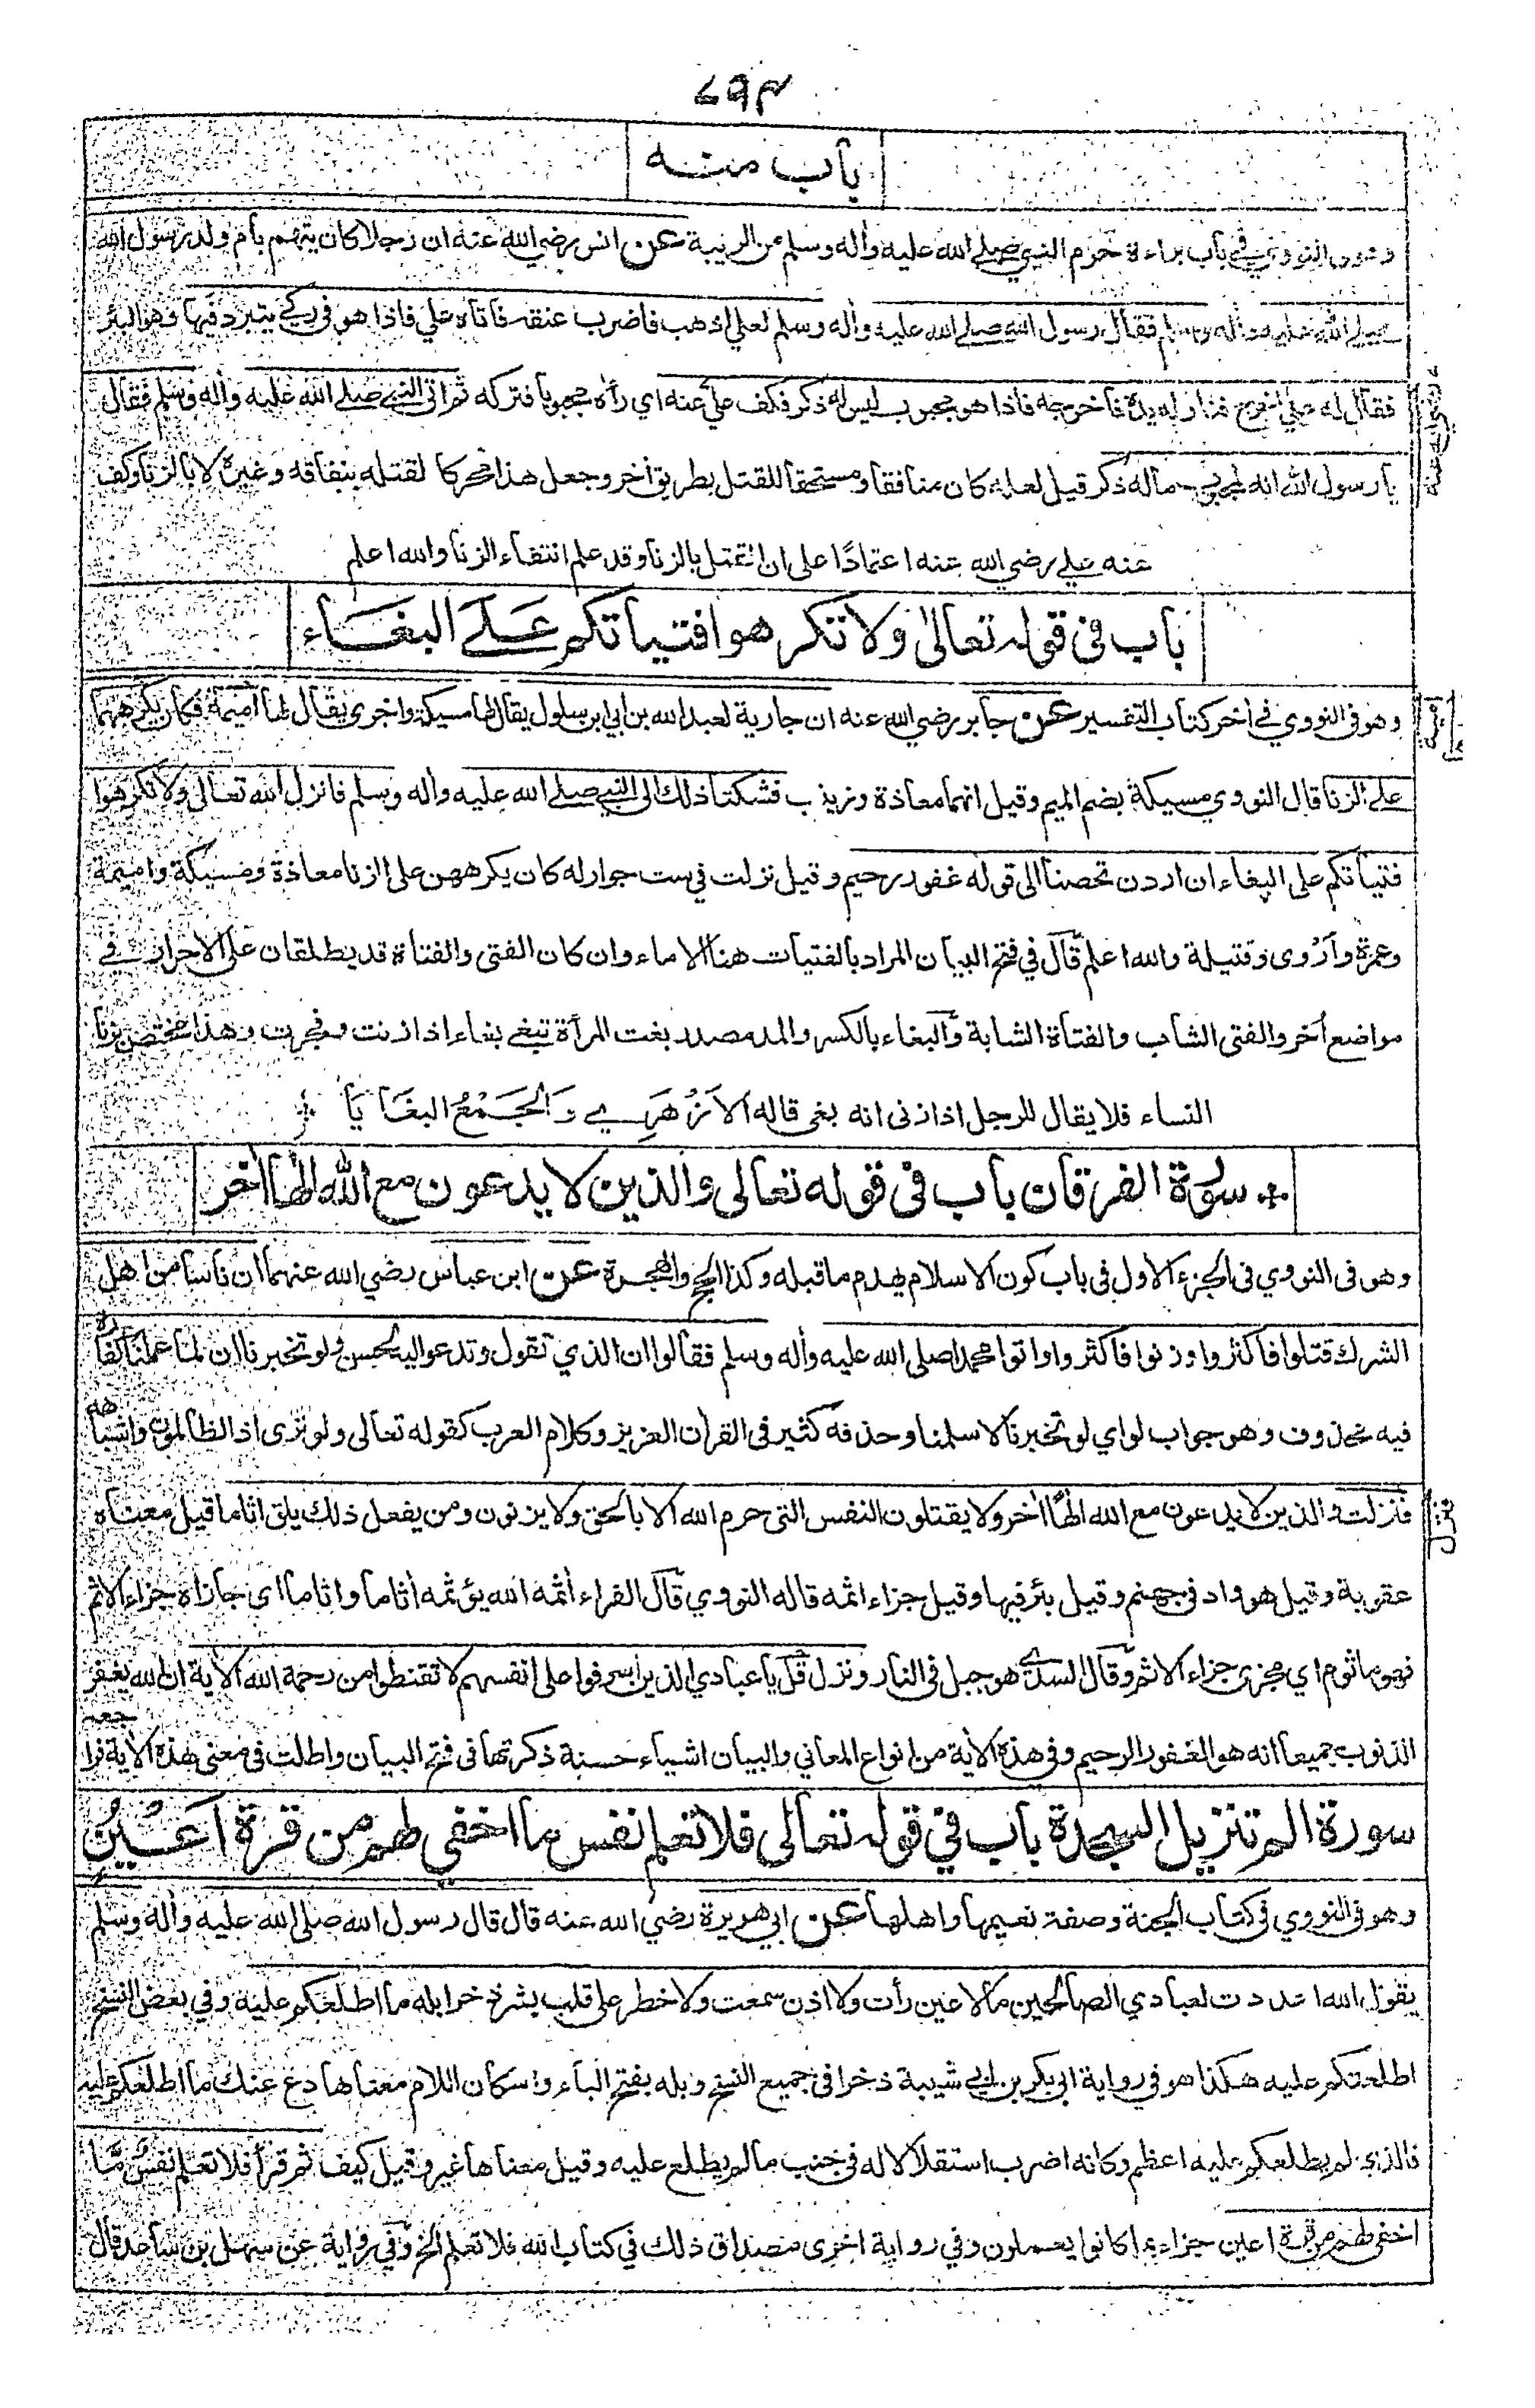 ٧٩٣
باب منه
وهو في النووي في باب براءة حرم النبي صلى الله عليه وأله وسلم من الريبة عن انس رضي الله عنه ان رجلا كان يتهم بأم ولد رسول الله
صلى الله عليه وأله وسلم فقال رسول الله صلى الله عليه وأله وسلم لعلي اذهب فاضرب عنقه فاتاه علي فاذا هو في ركي يتبرد فيها وهو البئر
فقال له علي اخرج فناوله يده فاخرجه فاذا هو مجبوب ليس له ذكر فكف علي عنه اي رأه مجبوبا فتركه ثم اتى النبي صلى الله عليه وأله وسلم فقال
يا رسول الله انه لمجبوب ماله ذكر قيل لعله كان منافقا ومستحقا للقتل بطريق أخر وجعل هذا محركا لقتله بنفاقه وغيره لا بالزنا وكف
عنه علي رضي الله عنه اعتمادًا على ان القتل بالزنا وقد علم انتفاء الزنا والله اعلم
باب في قوله تعالى ولا تكرهوا فتياتكم على البغاء
وهو في النووي في أخر كتاب التفسير عن جابر رضي الله عنه ان جارية لعبد الله بن ابي ابن سلول يقال لها مسيكة واخرى يقال لها أميمة فكان يكرههما
على الزنا قال النووي مسيكة بضم الميم وقيل انهما معاذة وزينب فشكتا ذلك الى النبي صلى الله عليه وأله وسلم فانزل الله تعالى ولا تكرهوا
فتياتكم على البغاء ان اردن تحصنا الى قوله غفور رحيم وقيل نزلت في ست جوار له كان يكرههن على الزنا معاذة ومسيكة واميمة
وعمرة وأروى وقتيلة والله اعلم قال في فتح البيان المراد بالفتيات هنا الاماء وان كان الفتى والفتاة قد يطلقان على الاحرار في
مواضع أخر والفتى الشاب والفتاة الشابة والبغاء بالكسر والمد مصدر بغت المرأة تبغي بغاء اذا زنت وفجرت وهذا مختص بزنا
النساء فلا يقال للرجل اذا زنى انه بغى قاله الأَزْهَرِي وَالجَمْعُ البغَايَا
سورة الفرقان باب في قوله تعالى والذين لا يدعون مع الله الها أخر
وهو في النووي في الجزء الاول في باب كون الاسلام يهدم ما قبله وكذا الحج والهجرة عن ابن عباس رضي الله عنهما ان ناسا من اهل
الشرك قتلوا فاكثروا وزنوا فاكثروا واتوا محمدا صلى الله عليه وأله وسلم فقالوا ان الذي تقول وتدعو اليه لحسن ولو تخبرنا ان لما عملنا كفارة
فيه محذوف وهو جواب لو اي لو تخبرنا لاسلمنا وحذفه كثير في القرأن العزيز وكلام العرب كقوله تعالى ولو ترى اذ الظالمون واشباهه
فنزلت والذين لا يدعون مع الله الها أخر ولا يقتلون النفس التي حرم الله الا بالحق ولا يزنون ومن يفعل ذلك يلق اثاما قيل معناه
عقوبة وقيل هو واد في جهنم وقيل بئر فيها وقيل جزاء اثمه قاله النووي قال الفراء أثمه الله يؤثمه أثاما واثاما اي جازاه جزاء الاثم
فهو ماثوم اي مجزي جزاء الاثم وقال السدي هو جبل في النار ونزل قل يا عبادي الذين اسرفوا على انفسهم لا تقنطوا من رحمة الله الأية ان الله يغفر
الذنوب جميعا انه هو الغفور الرحيم وفي هذه الأية من انواع المعاني والبيان اشياء حسنة ذكرتها في فتح البيان واطلت في معنى هذه الأية فراجعه
سورة الم تنزيل السجدة باب في قوله تعالى فلا تعلم نفس ما اخفي لهم من قرة أعْيُنٍ
وهو في النووي في كتاب الجنة وصفة نعيمها واهلها عن ابي هريرة رضي الله عنه قال قال رسول الله صلى الله عليه وأله وسلم
يقول الله اعددت لعبادي الصالحين ما لا عين رأت ولا اذن سمعت ولا خطر على قلب بشر ذخرا بله ما اطلعكم عليه وفي بعض النسخ
اطلعتكم عليه هكذا هو في رواية ابي بكر بن ابي شيبة ذخرا في جميع النسخ وبله بفتح الباء واسكان اللام معناها دع عنك ما اطلعكم عليه
فالذي لم يطلعكم عليه اعظم وكانه اضرب استقلالا له في جنب مالم يطلع عليه وقيل معناها غير وقيل كيف ثم قرأ فلا تعلم نفس مَّا
اخفي لهم من قرة اعين جزاء بما كانوا يعملون وفي رواية اخرى مصداق ذلك في كتاب الله فلا تعلم الخ وفي رواية عن سهل بن ساعد قال